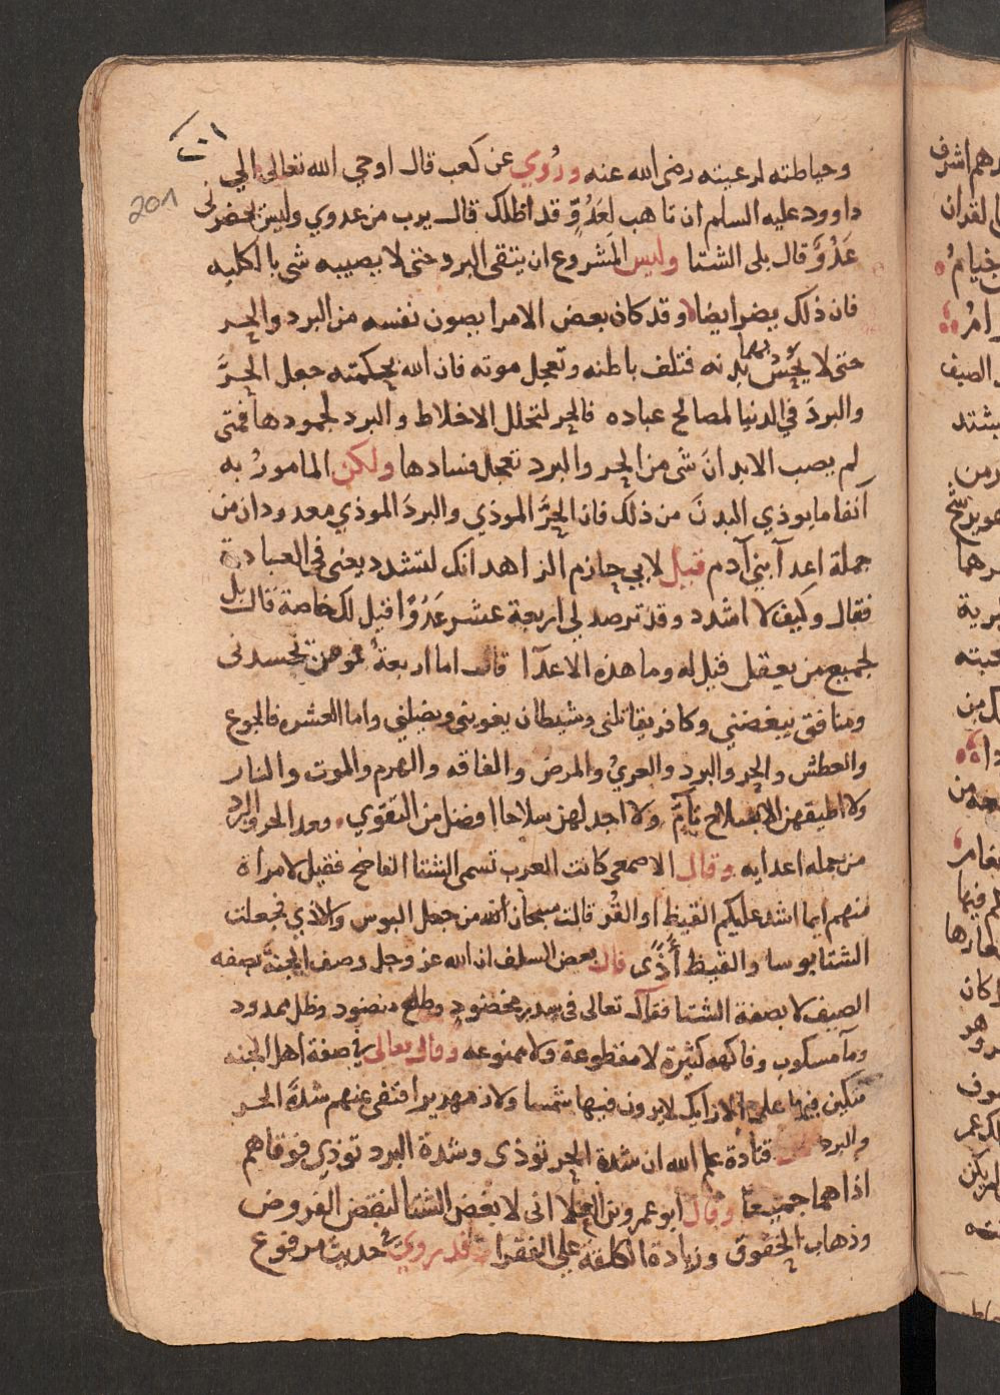 ٢٠١
201
وحياطته لرعيته رضى الله عنه وروي عن كعب قال اوحي الله تعالى الي
داوود عليه السلم ان تاهب لعدو قد اظلك قال يرب من عدوي وليس بحضرتي
عدو قال بلى الشتا وليس المشروع ان يتقى البرد حتى لا يصيبه شى بالكليه
فان ذلك يضر ايضا وقد كان بعض الامرا يصون نفسه من البرد والحر
حتى لا يحس بهما بدنه فتلف باطنه وتعجل موته فان الله بحكمته جعل الحر
والبرد في الدنيا لمصالح عباده فالحر لتحلل الاخلاط والبرد لجمودها فمتى
لم يصب الابدان شى من الحر والبرد تعجل فسادها ولكن المامور به
اتقا ما يوذي البدن من ذلك فان الحر الموذي والبرد الموذي معدودان من
جملة اعدا بني آدم قيل لابي حازم الزاهد انك لتشدد يعنى في العبادة
فقال وكيف لا اشدد وقد ترصد لي اربعة عشر عدوا قيل لك خاصة قال بل
لجميع من يعقل قيل له وما هذه الاعدآ قال اما اربعة فمومن يحسدنى
ومنافق يبغضني وكافر يقاتلنى وشيطان يغويني ويضلني واما العشره فالجوع
والعطش والحر والبرد والعري والمرض والفاقه والهرم والموت والنار
ولا اطيقهن الا بسلاح تآم ولا اجد لهن سلاحا افضل من التقوي فعد الحر والبرد
من جمله اعدايه وقال الاصمعى كانت العرب تسمى الشتا الفاضح فقيل لامراة
منهم ايما اشد عليكم القيظ او القر قالت سبحان الله من جعل البوس والاذي فجعلت
الشتا بوسا والقيظ أذى قال بعض السلف ان الله عز وجل وصف الجنة بصفه
الصيف لا بصفة الشتا فقال تعالى فى سدر مخضود وطلح منضود وظل ممدود
ومآ مسكوب وفاكهه كثيرة لا مقطوعة ولا ممنوعه وقال تعالى في صفة اهل الجنه
متكين فيها على الارايك لا يرون فيها شمسا ولا زمهريرا فنفى عنهم شدة الحر
والبرد قال قتادة علم الله ان شدة الحر توذى وشدة البرد توذي فوقاهم
اذاهما جميعا وقال ابو عمرو بن العلا انى لابغض الشتا لنقص الفروض
وذهاب الحقوق وزيادة الكلفة على الفقرا وقد روي في حديث مرفوع